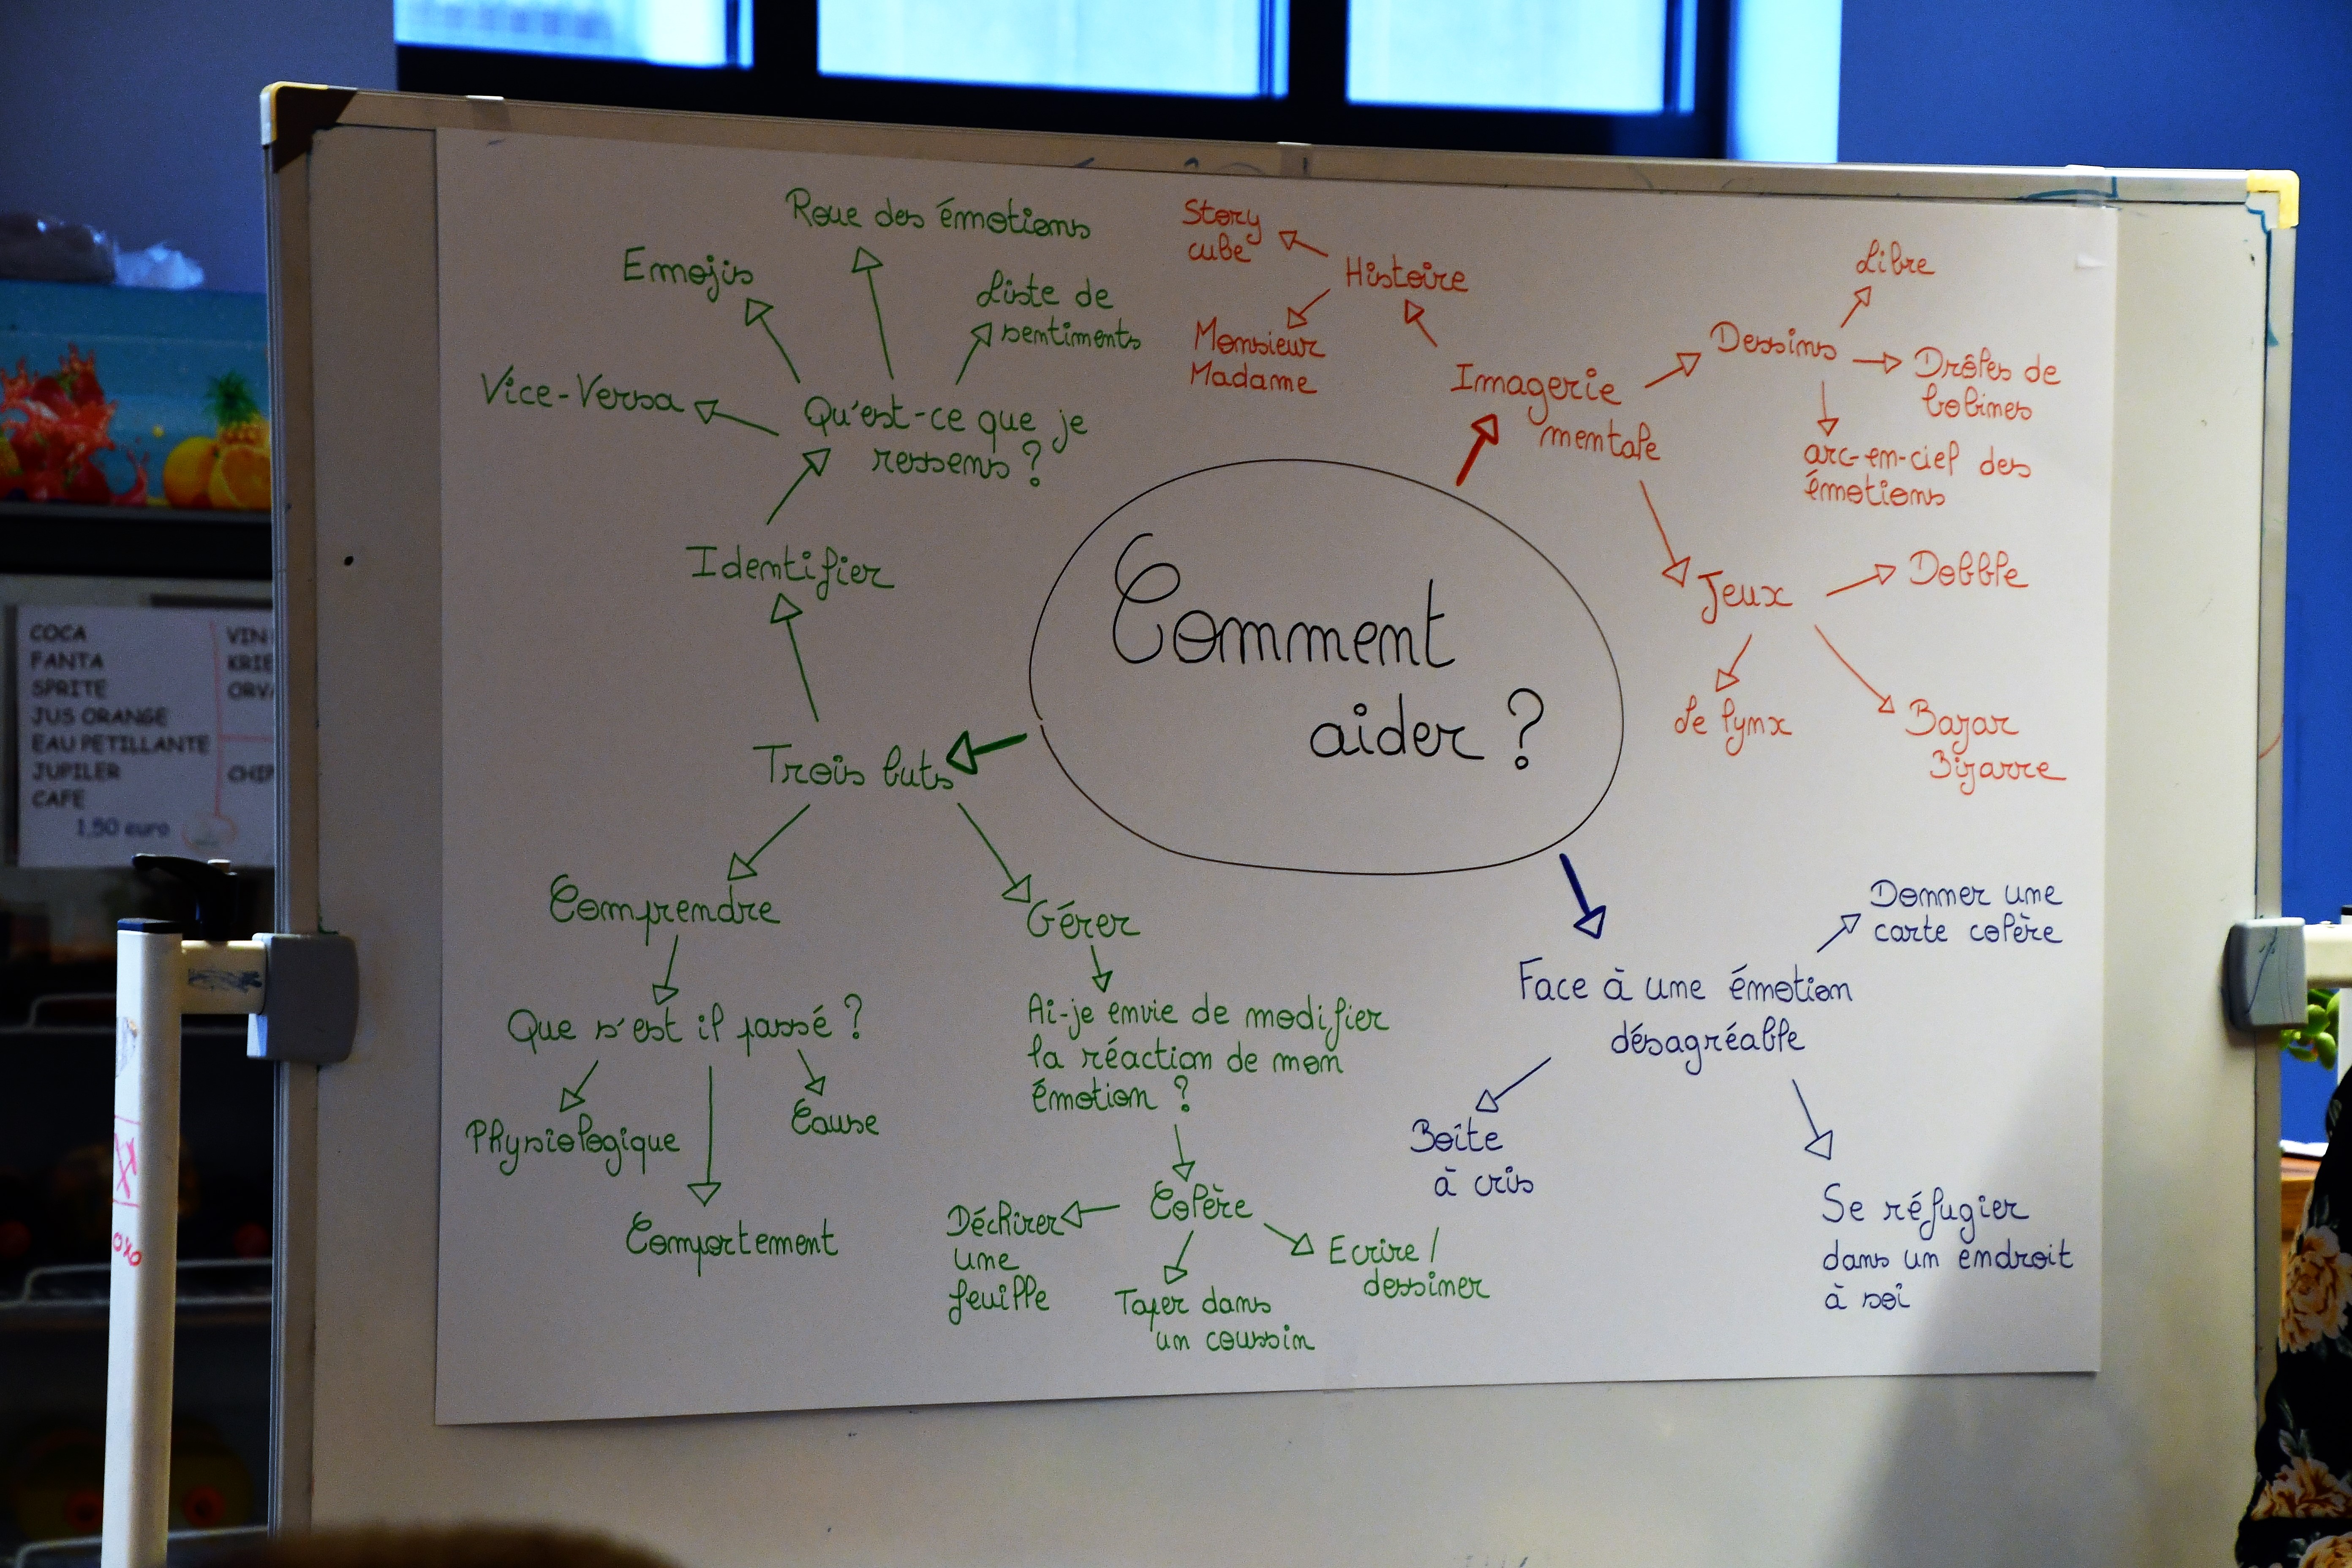 Roue des émotions
Emojis
Liste de
sentiments
Vice-Versa
Qu'est-ce que je
ressens ?
Identifier
Trois buts
Comprendre
Que s'est il passé ?
Physiologique
Cause
Comportement
Gérer
Ai-je envie de modifier
la réaction de mon
émotion ?
Colère
Déchirer
une
feuille
Taper dans
un coussin
Ecrire /
dessiner
Comment
aider ?
Story
cube
Histoire
Monsieur
Madame
Imagerie
mentale
Dessins
Libre
Drôles de
bobines
arc-en-ciel des
émotions
Jeux
Dobble
Le lynx
Bazar
Bizarre
Face à une émotion
désagréable
Donner une
carte colère
Boîte
à cris
Se réfugier
dans un endroit
à soi
COCA
FANTA
SPRITE
JUS ORANGE
EAU PETILLANTE
JUPILER
CAFE
1,50 euro
VIN
KRIE
ORVA
CHIP